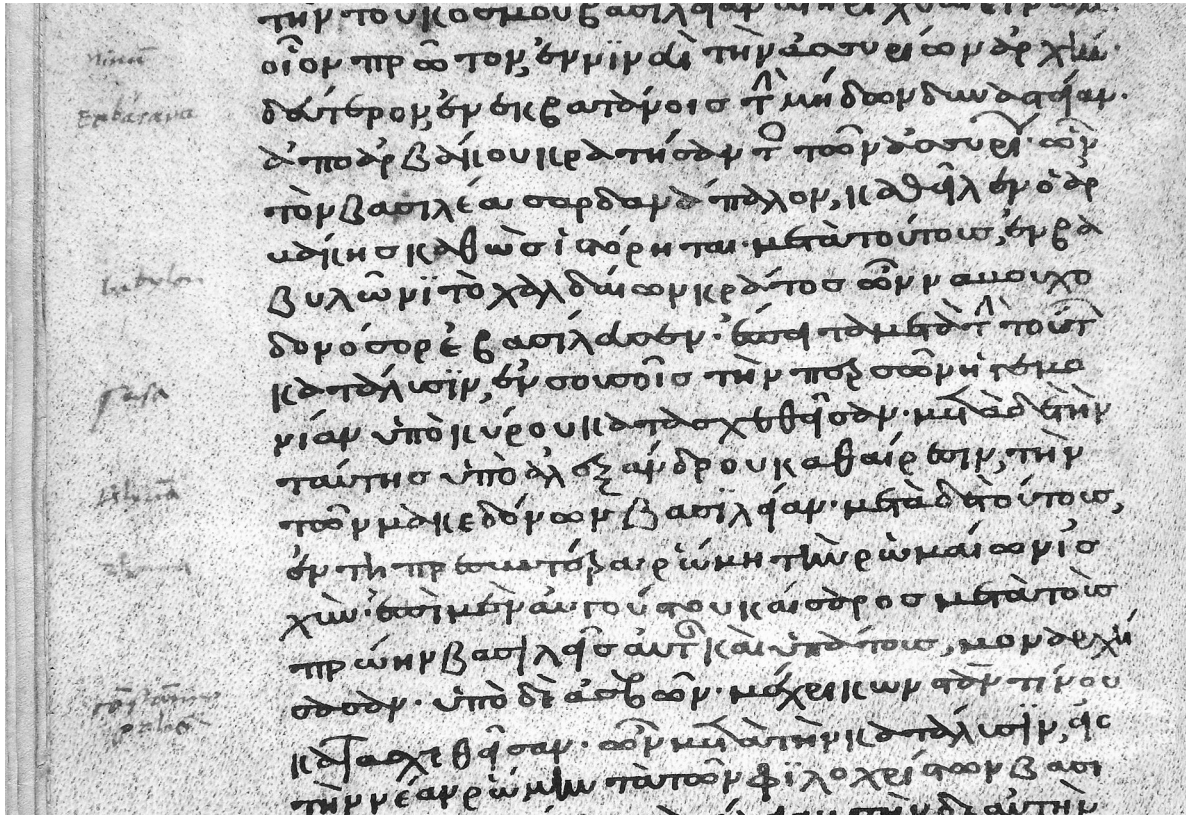 τὴν τοῦ κόσμου βασιλείαν
οἷον πρῶτον, ἐν νϊνευὶ τὴν ἀσσυρίων ἀρχήν·
δεύτερον, ἐν ἐκβατάνοις τὴν μήδων δυναστείαν·
ἀπὸ ἀρβάκου κρατήσασαν τῶν ἀσσυρίων· ὧν
τὸν βασιλέα σαρδανάπαλον, καθεῖλεν ὁ ἀρ
βάκης καθὼς ἱστόρηται· μετὰ τούτους, ἐν βα
βυλῶνϊ τὸ χαλδαίων κράτος ὧν ναβουχο
δονόσορ ἐβασίλευσεν· ἔπειτα μετὰ τὴν τούτων
κατάλυσϊν, ἐν σούσοις τὴν περσῶν ἡγεμο
νίαν ὑπὸ κύρου κατασχεθεῖσαν· μετὰ δὲ τὴν
ταύτης ὑπὸ ἀλεξάνδρου καθαίρεσιν, τὴν
τῶν μακεδόνων βασϊλείαν· μετὰ δὲ τούτους,
ἐν τῇ πρεσβυτέρᾳ ῥώμῃ τὴν ῥωμαίων ἰσ
χὺν· ἐπὶ μὲν αὐγούστου καίσαρος μετὰ τοὺς
πρώην βασιλεῖς αὐτῶν καὶ ὑπάτους, μοναρχή
σασαν· ὑπὸ δὲ ἀσεβῶν· μέχρι κωνσταντίνου
κατασχεθεῖσαν· ὧν μετὰ τὴν κατάλυσϊν, εἰς
τὴν νέαν ῥώμην τὰ τῶν φϊλοχρίστων βασι
τὴν δὲ αὐτὴν